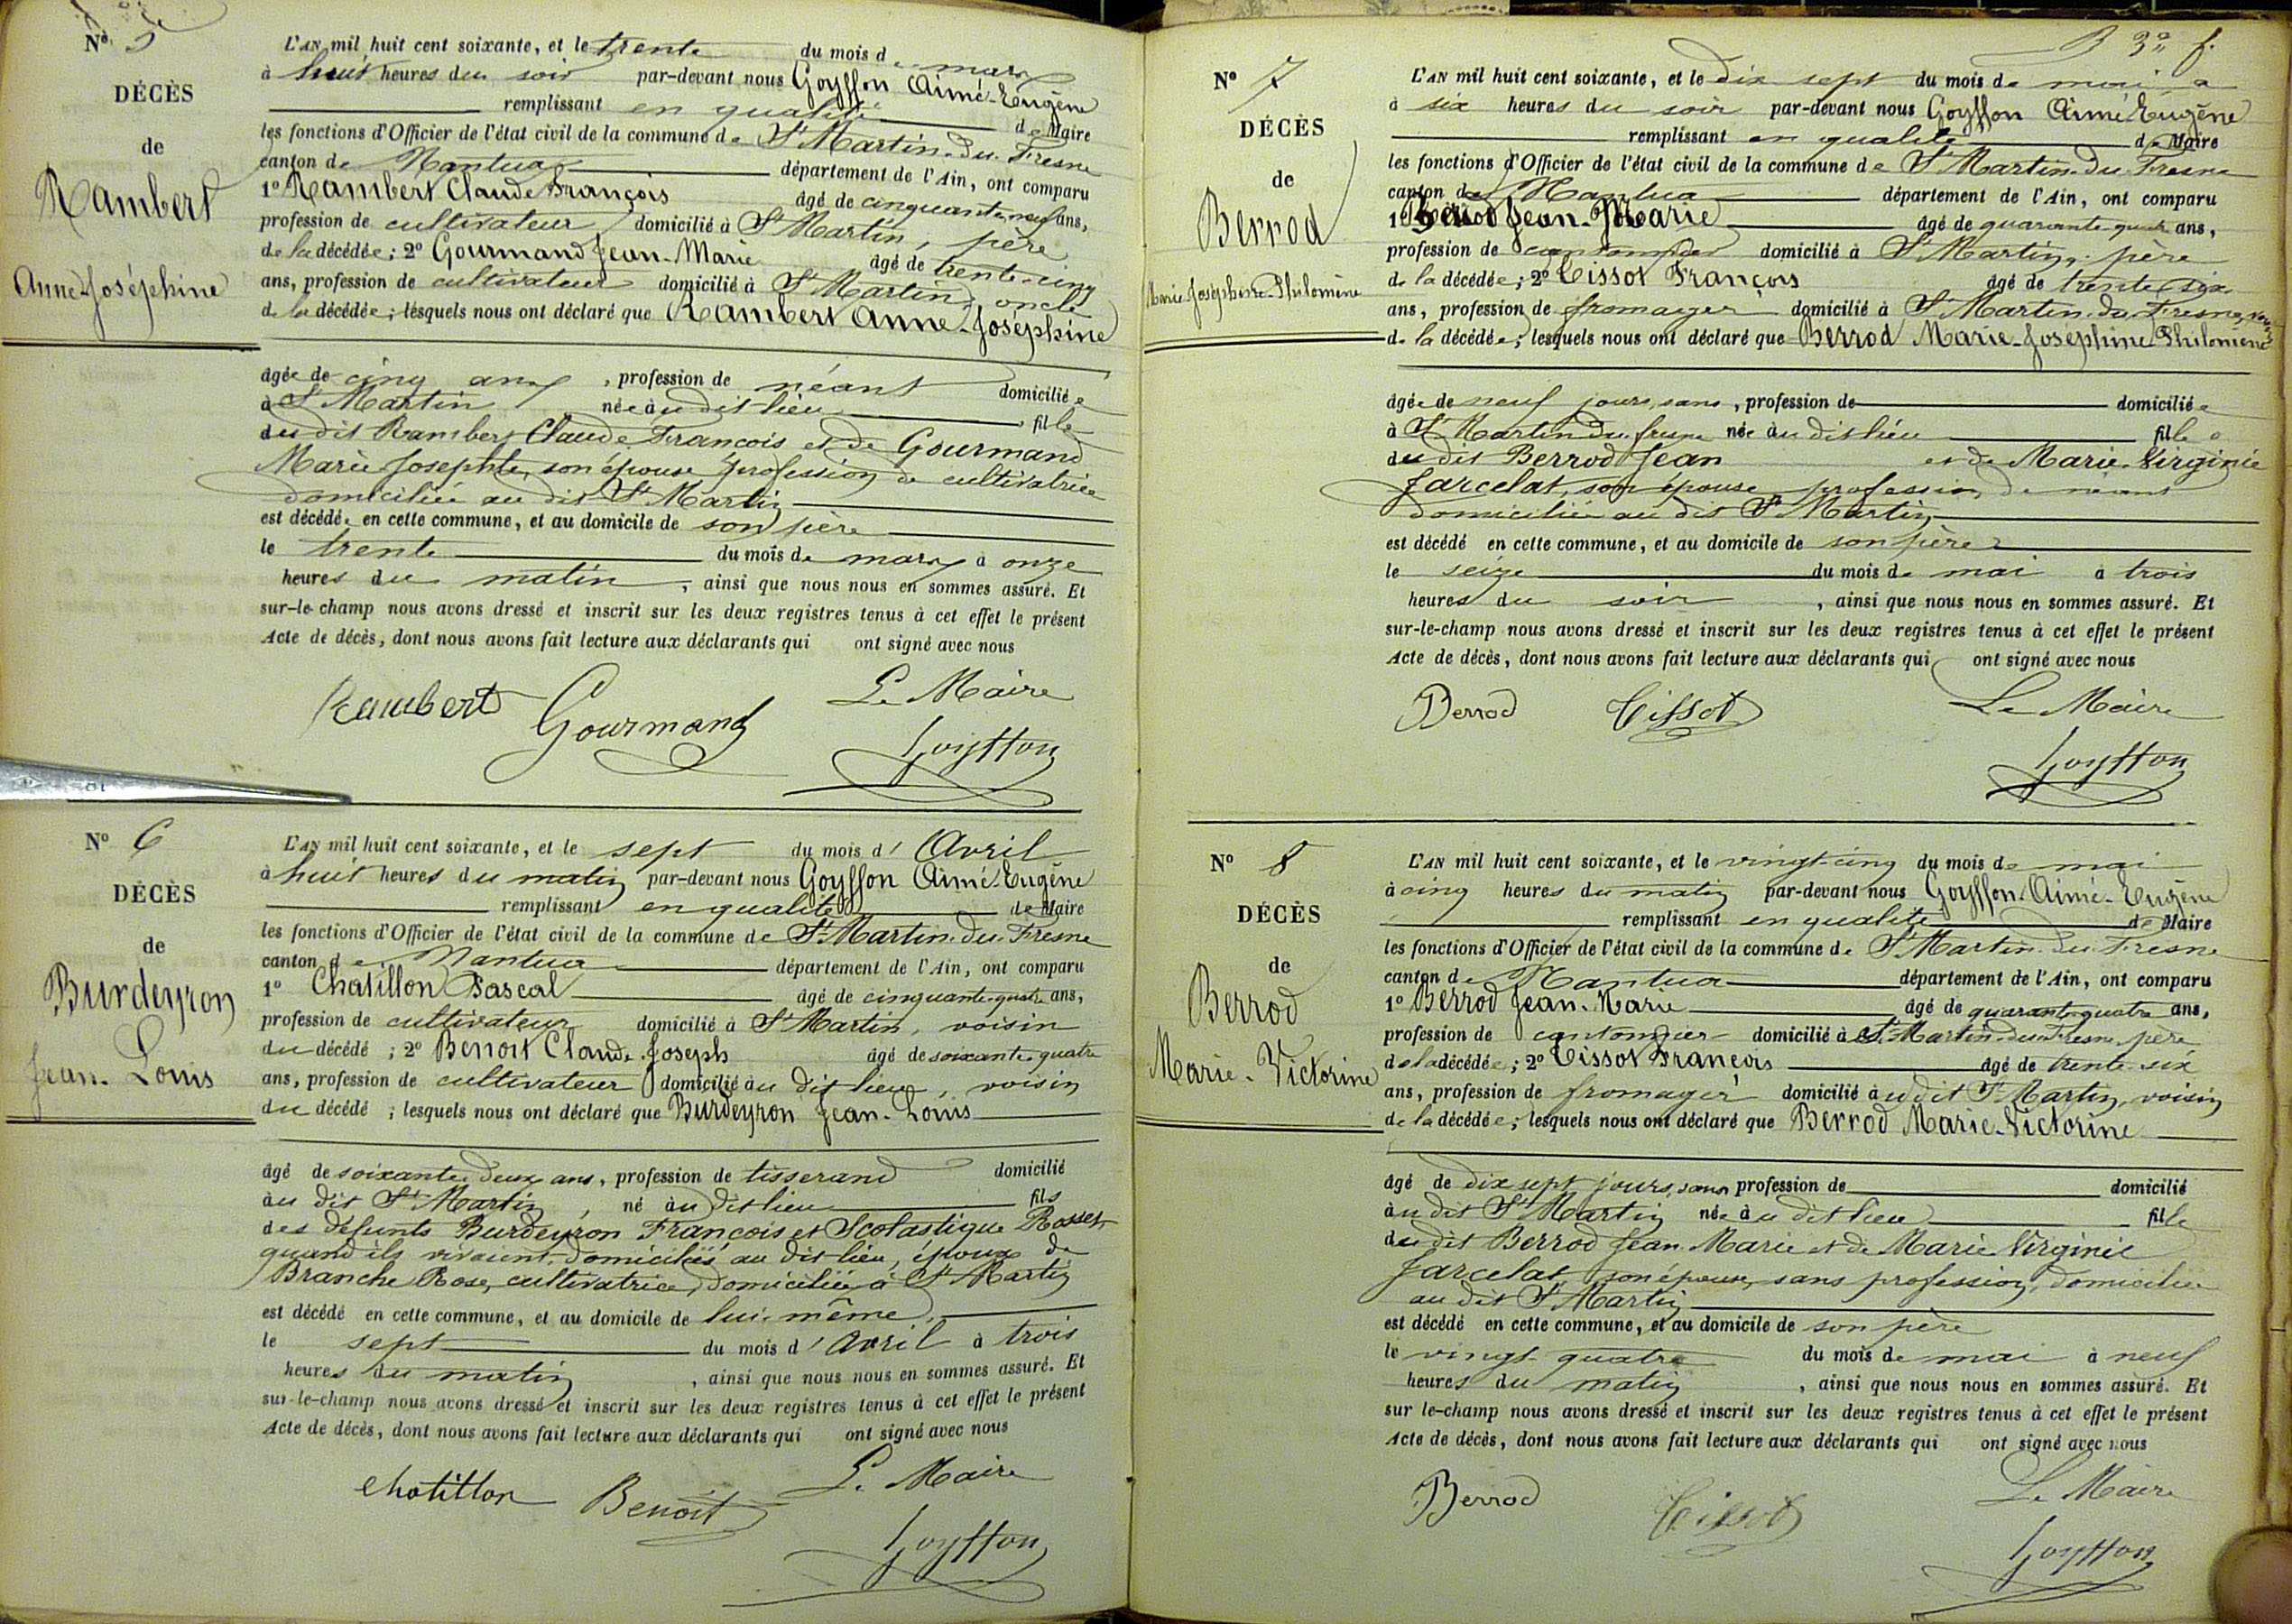 Nº 5
DÉCÈS
de
Rambert
Anne-Joséphine
L'AN mil huit cent soixante, et le trente du mois de mars
à huit heures du soir par-devant nous Goyffon Aimé-Eugène
remplissant en qualité de Maire
les fonctions d'Officier de l'état civil de la commune de St Martin-du-Fresne
canton de Nantua département de l'Ain, ont comparu
1º Rambert Claude François âgé de cinquante-neuf ans,
profession de cultivateur domicilié à St Martin, père
de la décédée ; 2º Gourmand Jean-Marie âgé de trente-cinq
ans, profession de cultivateur domicilié à St Martin, oncle
de la décédée ; lesquels nous ont déclaré que Rambert Anne-Joséphine
âgée de cinq ans , profession de néant domiciliée
à St Martin née au dit lieu , fille
du dit Rambert Claude François et de Gourmand
Marie Josephte, son épouse profession de cultivatrice
domiciliée au dit St Martin
est décédée en cette commune, et au domicile de son père
le trente du mois de mars à onze
heures du matin , ainsi que nous nous en sommes assuré. Et
sur-le-champ nous avons dressé et inscrit sur les deux registres tenus à cet effet le présent
Acte de décès, dont nous avons fait lecture aux déclarants qui ont signé avec nous
Rambert Gourmand Le Maire
Goyffon
Nº 6
DÉCÈS
de
Burdeyron
Jean-Louis
L'AN mil huit cent soixante, et le sept du mois d'Avril
à huit heures du matin par-devant nous Goyffon Aimé-Eugène
remplissant en qualité de Maire
les fonctions d'Officier de l'état civil de la commune de St Martin-du-Fresne
canton de Nantua département de l'Ain, ont comparu
1º Chatillon Pascal âgé de cinquante-quatre ans,
profession de cultivateur domicilié à St Martin, voisin
du décédé ; 2º Benoit Claude-Joseph âgé de soixante-quatre
ans, profession de cultivateur domicilié au dit lieu, voisin
du décédé ; lesquels nous ont déclaré que Burdeyron Jean-Louis
âgé de soixante-deux ans, profession de tisserand domicilié
au dit St Martin, né au dit lieu fils
des défunts Burdeyron François et Scolastique Rosset
quand ils vivaient, domiciliés au dit lieu, époux de
Branche Rose, cultivatrice, domiciliée à St Martin
est décédé en cette commune, et au domicile de lui-même,
le sept du mois d'Avril à trois
heures du matin , ainsi que nous nous en sommes assuré. Et
sur-le-champ nous avons dressé et inscrit sur les deux registres tenus à cet effet le présent
Acte de décès, dont nous avons fait lecture aux déclarants qui ont signé avec nous
Chatillon Benoit Le Maire
Goyffon
3º f.
Nº 7
DÉCÈS
de
Berrod
Marie Joséphine-Philomène
L'AN mil huit cent soixante, et le dix sept du mois de mai
à six heures du soir par-devant nous Goyffon Aimé-Eugène
remplissant en qualité de Maire
les fonctions d'Officier de l'état civil de la commune de St Martin-du-Fresne
canton de Nantua département de l'Ain, ont comparu
1º Berrod Jean-Marie âgé de quarante-quatre ans,
profession de cantonnier domicilié à St Martin, père
de la décédée ; 2º Tissot François âgé de trente-six
ans, profession de fromager domicilié à St Martin-du-Fresne, voisin
de la décédée ; lesquels nous ont déclaré que Berrod Marie-Joséphine Philomène
âgée de neuf jours, sans , profession de domiciliée
à St Martin du fresne née au dit lieu fille
du dit Berrod Jean et de Marie-Virginie
Jarcelat, son épouse, profession de néant
domiciliée au dit St Martin
est décédé en cette commune, et au domicile de son père
le seize du mois de mai à trois
heures du soir , ainsi que nous nous en sommes assuré. Et
sur-le-champ nous avons dressé et inscrit sur les deux registres tenus à cet effet le présent
Acte de décès, dont nous avons fait lecture aux déclarants qui ont signé avec nous
Berrod Tissot Le Maire
Goyffon
Nº 8
DÉCÈS
de
Berrod
Marie-Victorine
L'AN mil huit cent soixante, et le vingt-cinq du mois de mai
à cinq heures du matin par-devant nous Goyffon-Aimé-Eugène
remplissant en qualité de Maire
les fonctions d'Officier de l'état civil de la commune de St Martin-du-Fresne
canton de Nantua département de l'Ain, ont comparu
1º Berrod Jean-Marie âgé de quarante-quatre ans,
profession de cantonnier domicilié à St Martin-du-Fresne, père
de la décédée ; 2º Tissot François âgé de trente-six
ans, profession de fromager domicilié au dit St Martin, voisin
de la décédée ; lesquels nous ont déclaré que Berrod Marie-Victorine
âgé de dix sept jours, sans profession de domicilié
au dit St Martin née au dit lieu fille
du dit Berrod Jean-Marie et de Marie Virginie
Jarcelat, son épouse, sans profession, domiciliée
au dit St Martin
est décédé en cette commune, et au domicile de son père
le vingt-quatre du mois de mai à neuf
heures du matin , ainsi que nous nous en sommes assuré. Et
sur le-champ nous avons dressé et inscrit sur les deux registres tenus à cet effet le présent
Acte de décès, dont nous avons fait lecture aux déclarants qui ont signé avec nous
Berrod Tissot Le Maire
Goyffon